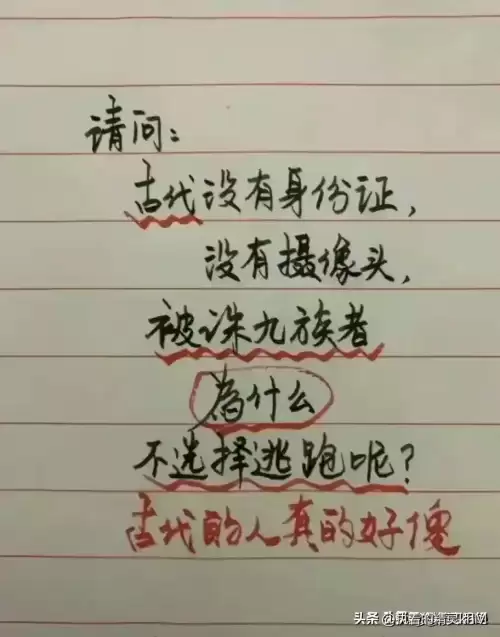 请问：
古代没有身份证，
没有摄像头，
被诛九族者
为什么
不选择逃跑呢？
古代的人真的好傻
头条 @